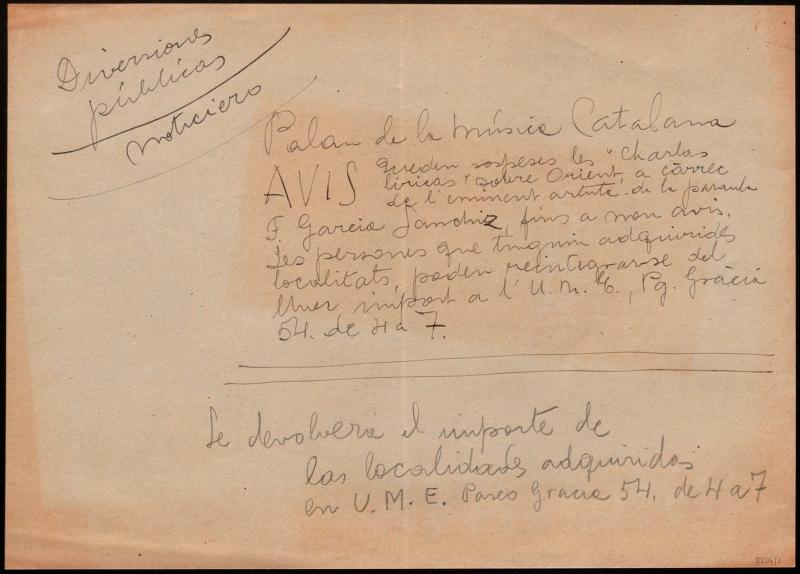 Diversiones
públicas
Noticiero
Palau de la Música Catalana
AVIS Queden sospeses les "Charlas
líricas" sobre Orient, a càrrec
de l'eminent artista de la paraula
F. García Sanchiz, fins a nou avis.
Les persones que tinguin adquirides
localitats, poden reintegrar-se del
llur import a l'U. M. E., Pg. Gràcia
54. de 4 a 7.
Se devolverá el importe de
las localidades adquiridas
en U. M. E. Paseo Gracia 54. de 4 a 7